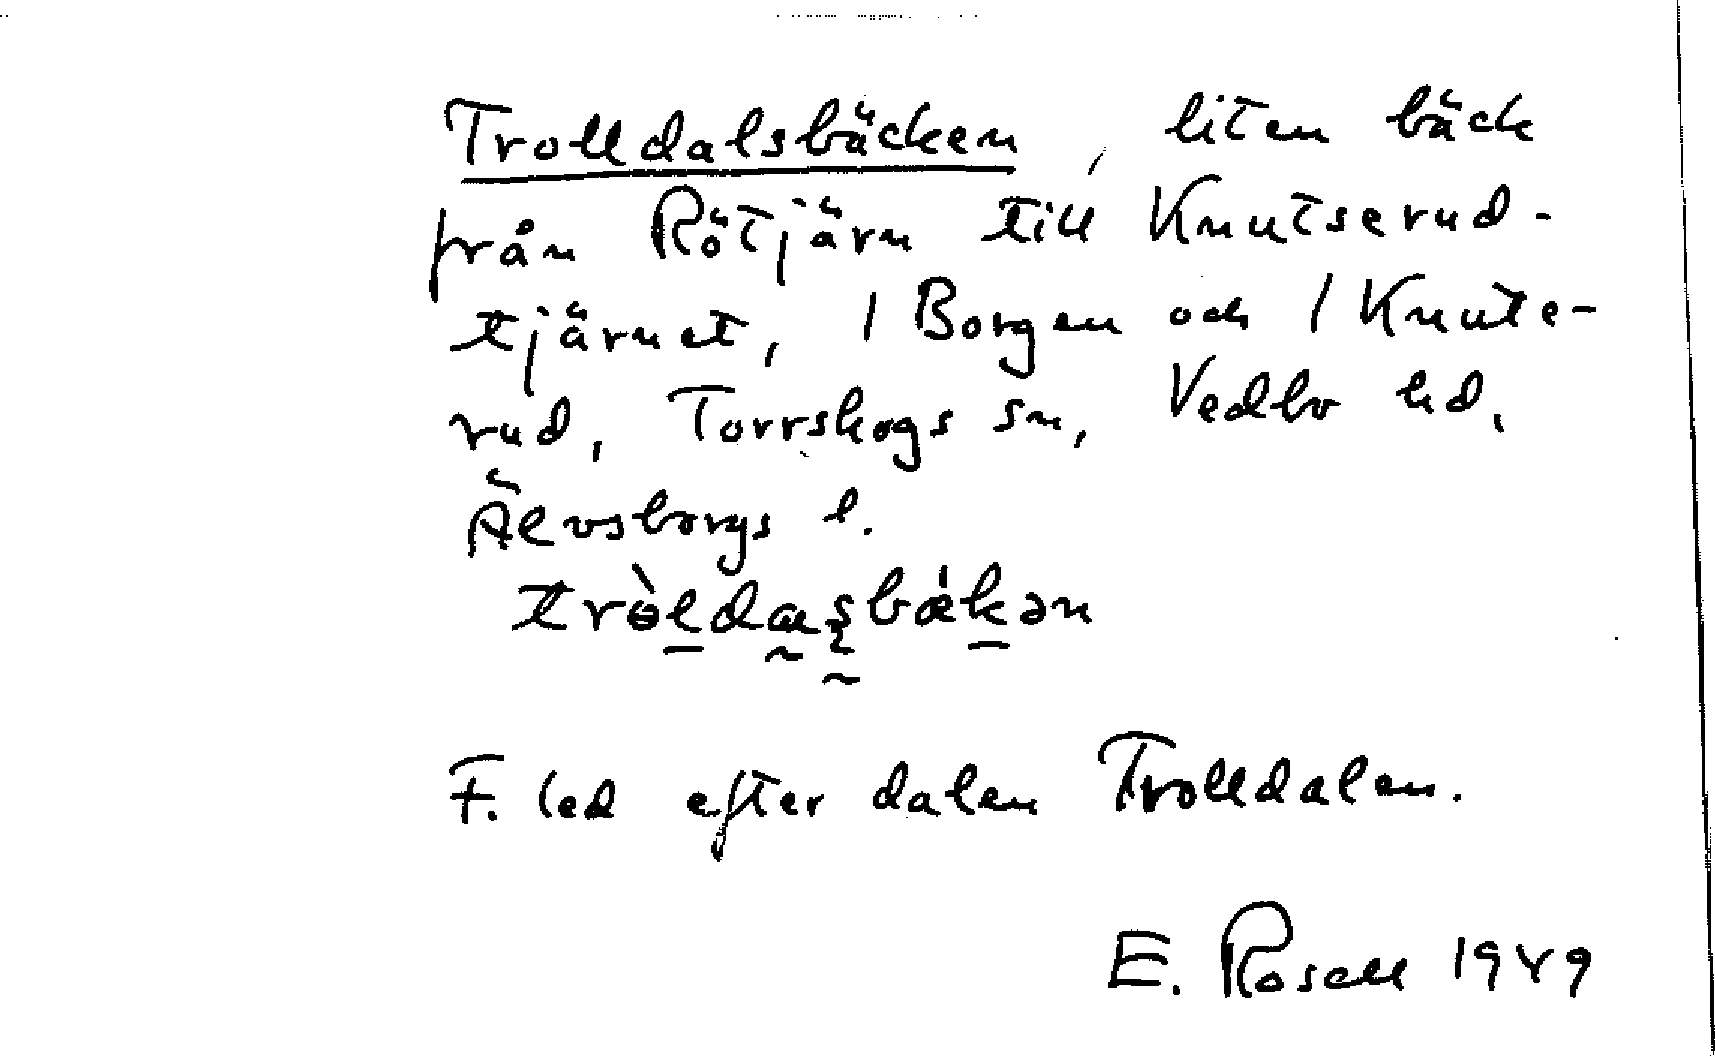 Trolldalsbäcken, liten bäck
från Rötjärn till Knutserud-
tjärnet, / Borgen och / Knute-
rud, Torrskogs sn, Vedbo hd,
Älvsborgs l.
F. led efter dalen Trolldalen.
E. Rosell 1949